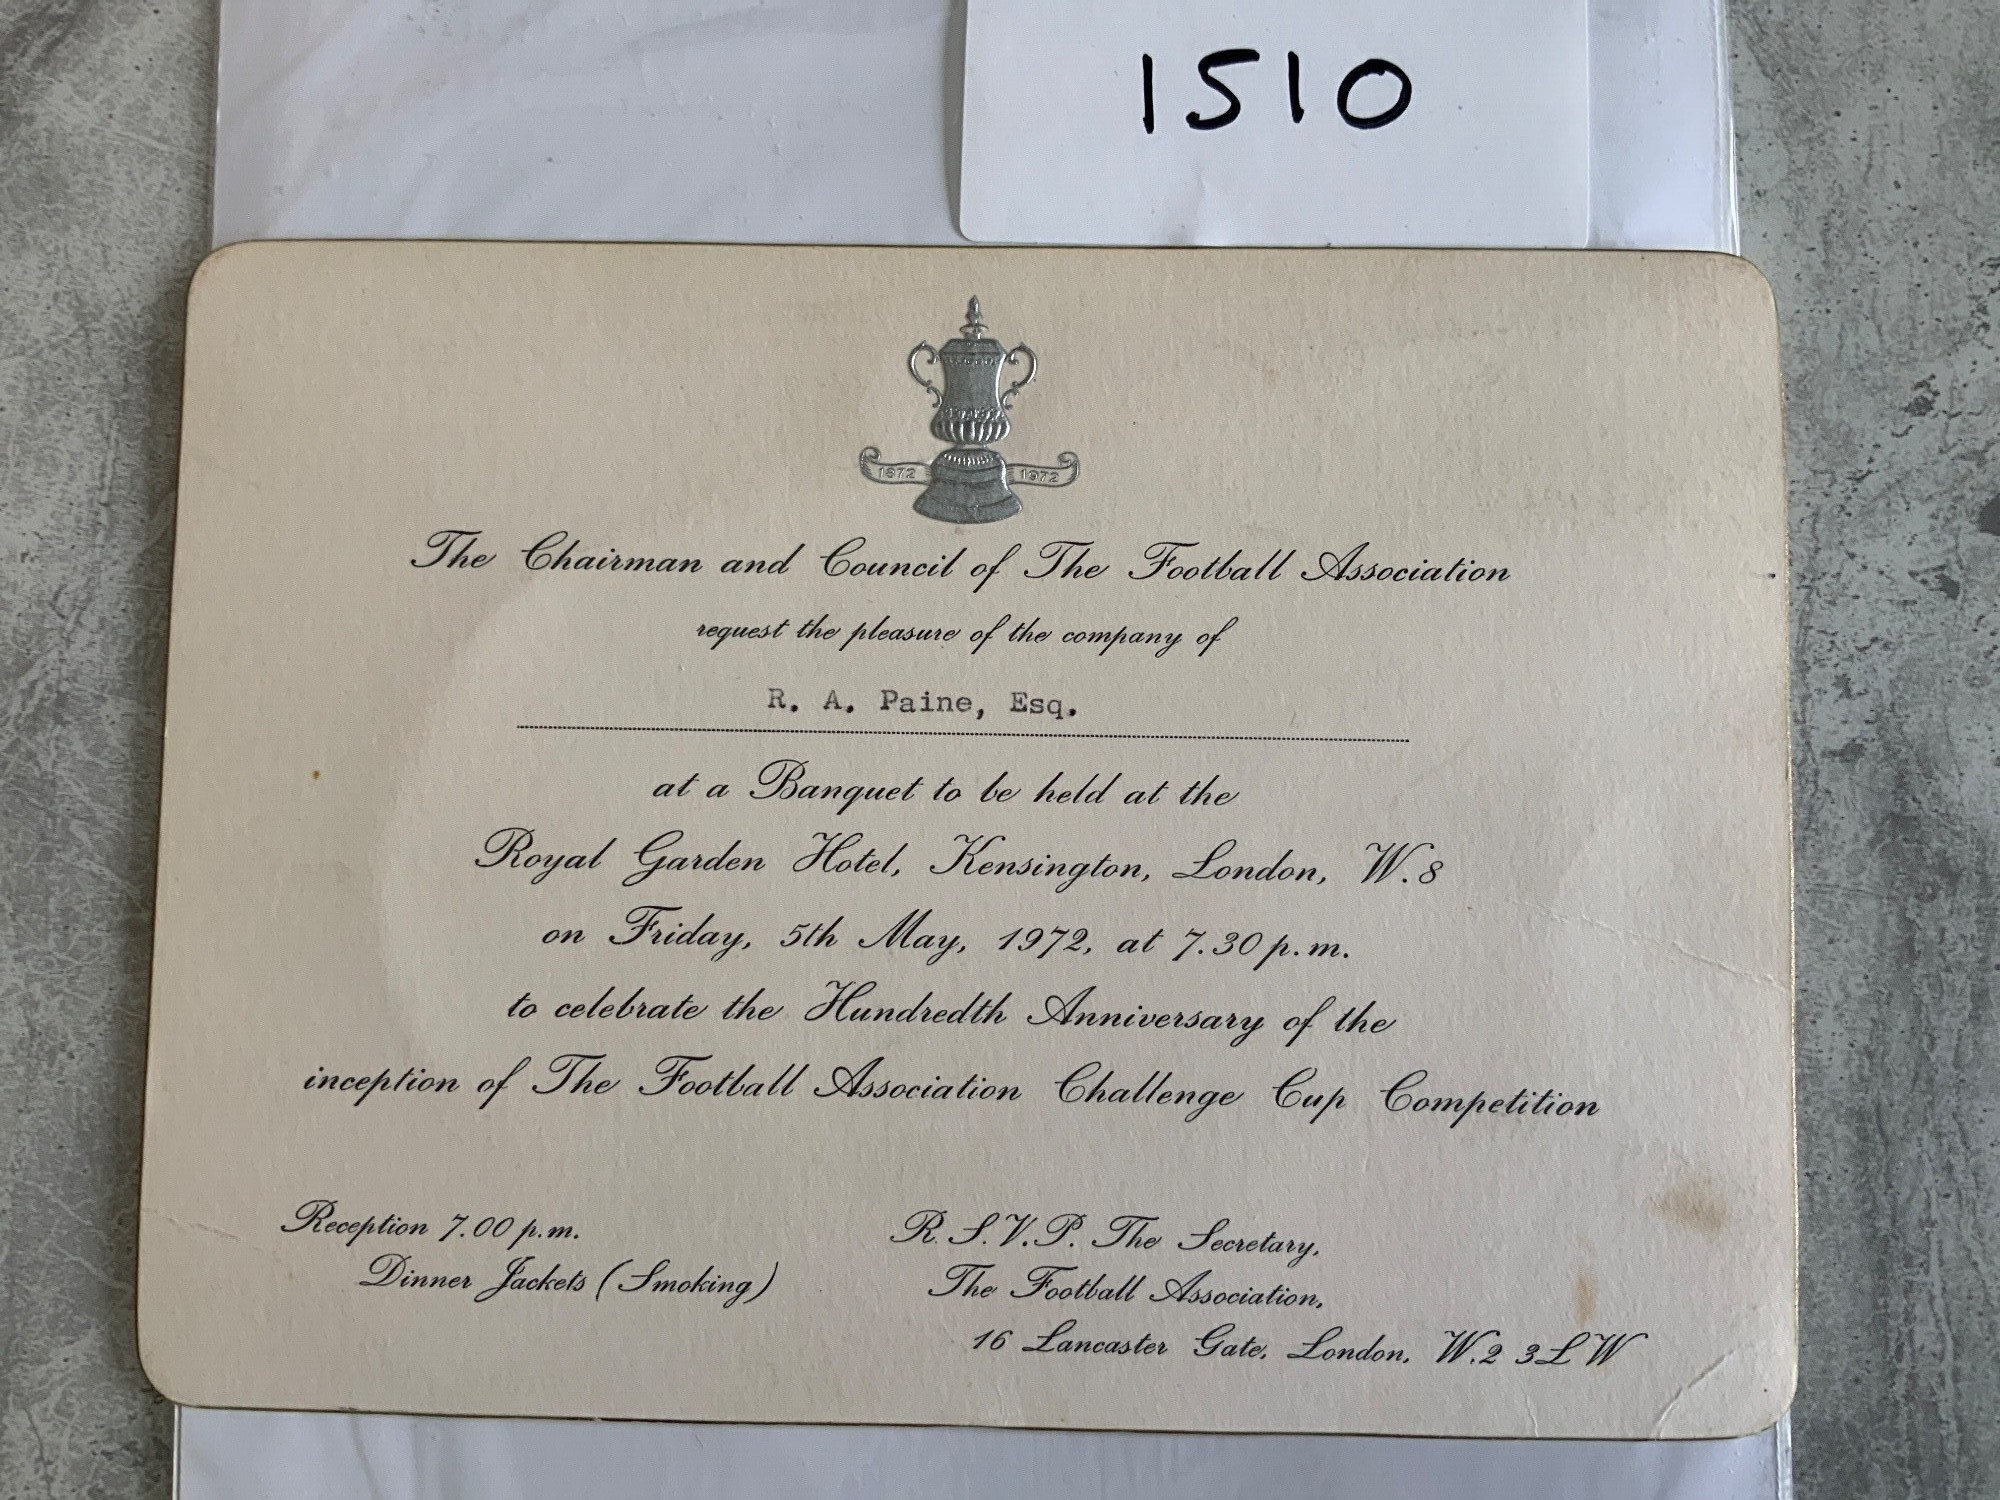 1510
1872 1972
The Chairman and Council of The Football Association
request the pleasure of the company of
R. A. Paine, Esq.
at a Banquet to be held at the
Royal Garden Hotel, Kensington, London, W.8
on Friday, 5th May, 1972, at 7.30 p.m.
to celebrate the Hundredth Anniversary of the
inception of The Football Association Challenge Cup Competition
Reception 7.00 p.m.
Dinner Jackets (Smoking)
R.S.V.P. The Secretary,
The Football Association,
16 Lancaster Gate, London, W.2 3LW